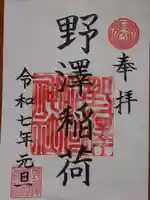 奉拝
野澤稲荷
令和七年元旦